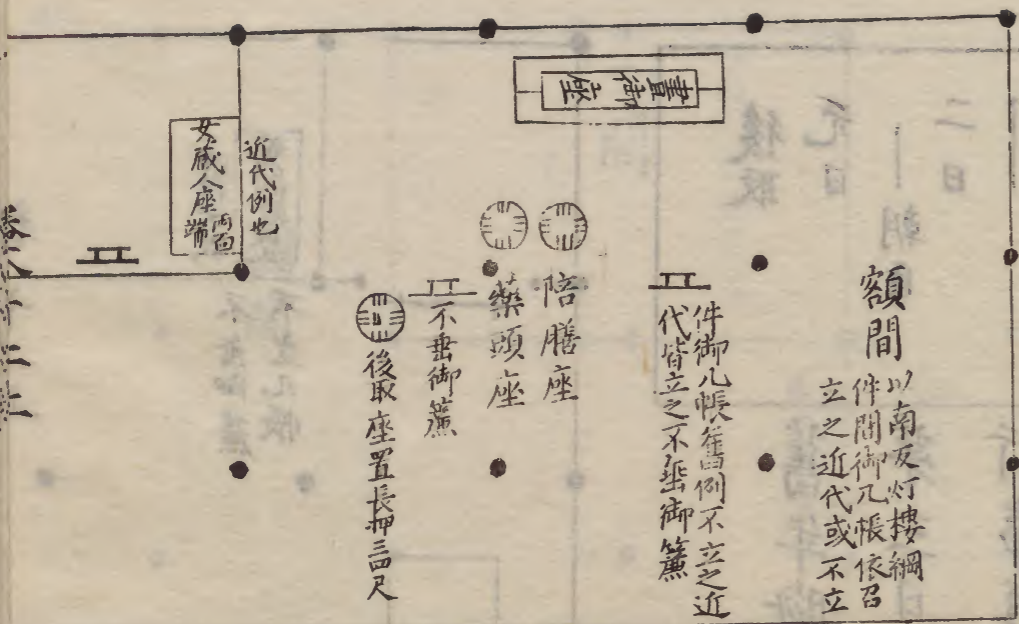 額間
以南反灯樓綱
件間御几帳依召
立之近代或不立
件御几帳舊例不立之近
代皆立之不垂御簾
晝御座
陪膳座
藥頭座
不垂御簾
後取座置長押三四尺
近代例也
女蔵人座
両面端